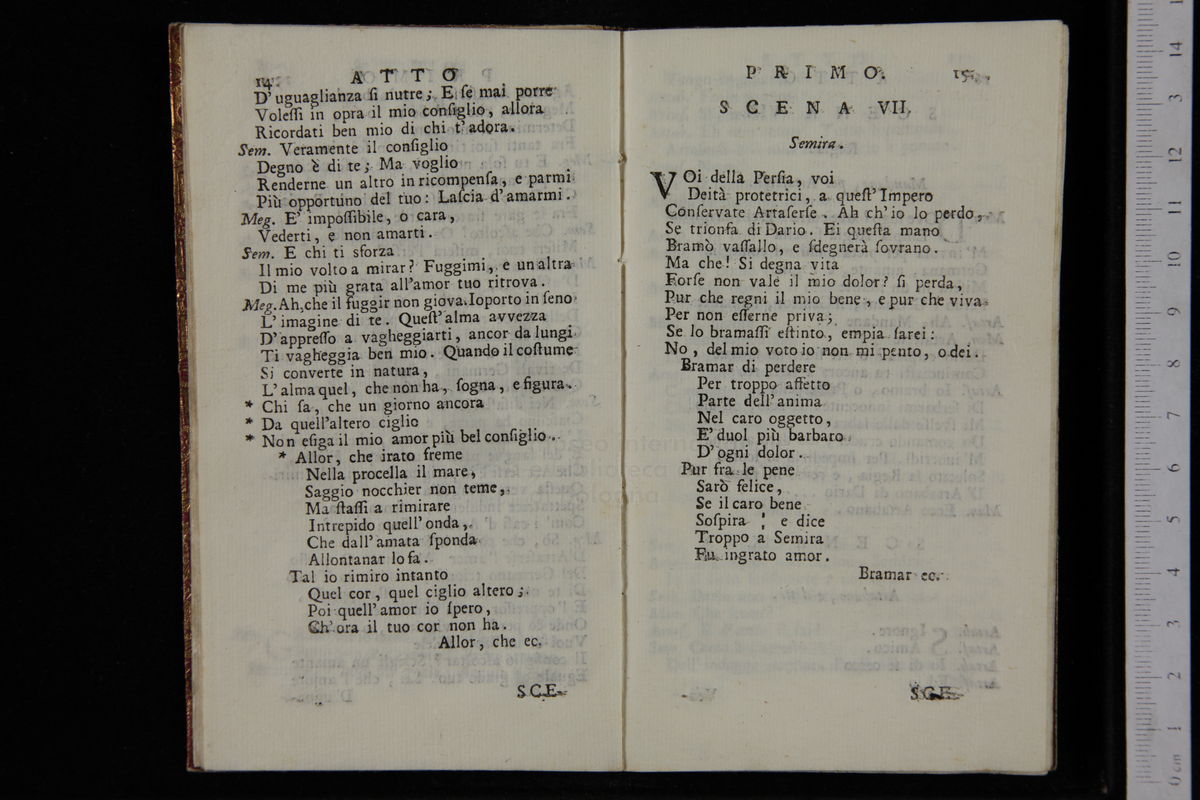 14 ATTO
D'uguaglianza ſi nutre; E ſe mai porre
Voleſſi in opra il mio conſiglio, allora
Ricordati ben mio di chi t'adora.
Sem. Veramente il conſiglio
Degno è di te; Ma voglio
Renderne un altro in ricompenſa, e parmi
Più opportuno del tuo: Laſcia d'amarmi.
Meg. E' impoſſibile, o cara,
Vederti, e non amarti.
Sem. E chi ti sforza
Il mio volto a mirar? Fuggimi, e un altra
Di me più grata all'amor tuo ritrova.
Meg. Ah, che il fuggir non giova. Io porto in ſeno
L'imagine di te. Queſt'alma avvezza
D'appreſſo a vagheggiarti, ancor da lungi
Ti vagheggia ben mio. Quando il coſtume
Si converte in natura,
L'alma quel, che non ha, ſogna, e figura.
* Chi ſa, che un giorno ancora
* Da quell'altero ciglio
* Non eſiga il mio amor più bel conſiglio.
* Allor, che irato freme
Nella procella il mare,
Saggio nocchier non teme,
Ma ſtaſſi a rimirare
Intrepido quell'onda,
Che dall'amata ſponda
Allontanar lo fa.
Tal io rimiro intanto
Quel cor, quel ciglio altero;
Poi quell'amor io ſpero,
Ch'ora il tuo cor non ha.
Allor, che ec.
SCE-
PRIMO. 15
SCENA VII.
Semira.
VOi della Perſia, voi
Deità protetrici, a queſt'Impero
Conſervate Artaſerſe. Ah ch'io lo perdo,
Se trionfa di Dario. Ei queſta mano
Bramò vaſſallo, e ſdegnerà ſovrano.
Ma che! Si degna vita
Forſe non vale il mio dolor? ſi perda,
Pur che regni il mio bene, e pur che viva
Per non eſſerne priva;
Se lo bramaſſi eſtinto, empia ſarei:
No, del mio voto io non mi pento, o dei.
Bramar di perdere
Per troppo affetto
Parte dell'anima
Nel caro oggetto,
E' duol più barbaro
D'ogni dolor.
Pur fra le pene
Sarò felice,
Se il caro bene
Soſpira ; e dice
Troppo a Semira
Fu ingrato amor.
Bramar ec.
SCE-